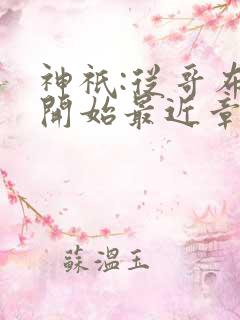 神祇:從哥布
開始最近章
蘇溫玉